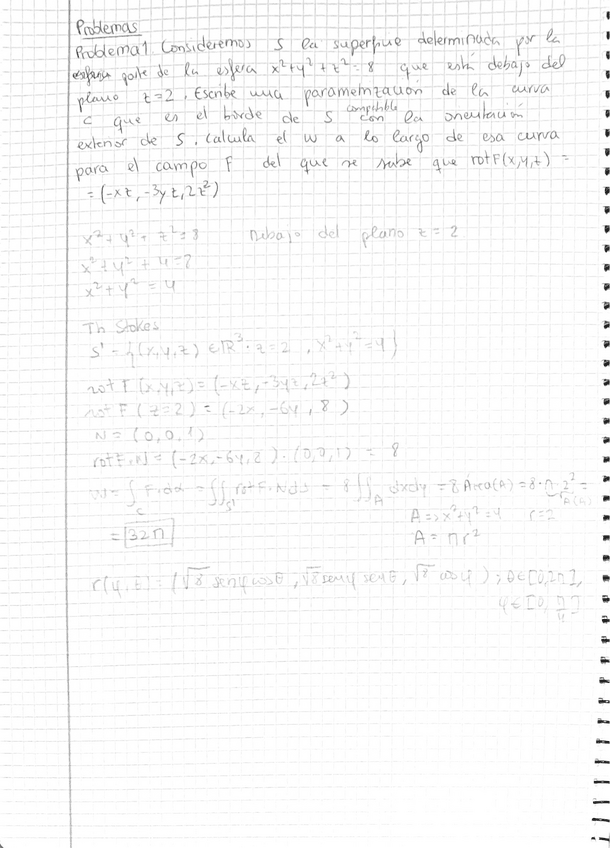 Problemas
Problema 1 Consideremos S la superficie determinada por la
parte de la esfera x²+y²+z²=8 que está debajo del
plano z=2. Escribe una parametrización de la curva
C que es el borde de S compatible con la orientación
exterior de S. Calcula el W a lo largo de esa curva
para el campo F del que se sabe que rotF(x,y,z) =
= (-xz, -3yz, 2z²)
x²+y²+z²=8 Debajo del plano z=2
x²+y²+4=8
x²+y²=4
Th Stokes
S'={(x,y,z) ∈ ℝ³: z=2, x²+y²=4}
rot F(x,y,z)=(-xz,-3yz,2z²)
rot F(z=2)=(-2x,-6y,8)
N=(0,0,1)
rotF·N=(-2x,-6y,8)·(0,0,1) = 8
W=∫_C F·dα = ∬_S' rotF·N ds = 8∬_A dxdy = 8 Área(A)=8·π·2²=
A(A)
= 32π
A => x²+y²=4 r=2
A = πr²
r(φ,θ)=(√8 senφ cosθ, √8 senφ senθ, √8 cosφ); θ∈[0,2π],
φ∈[0,π/4]